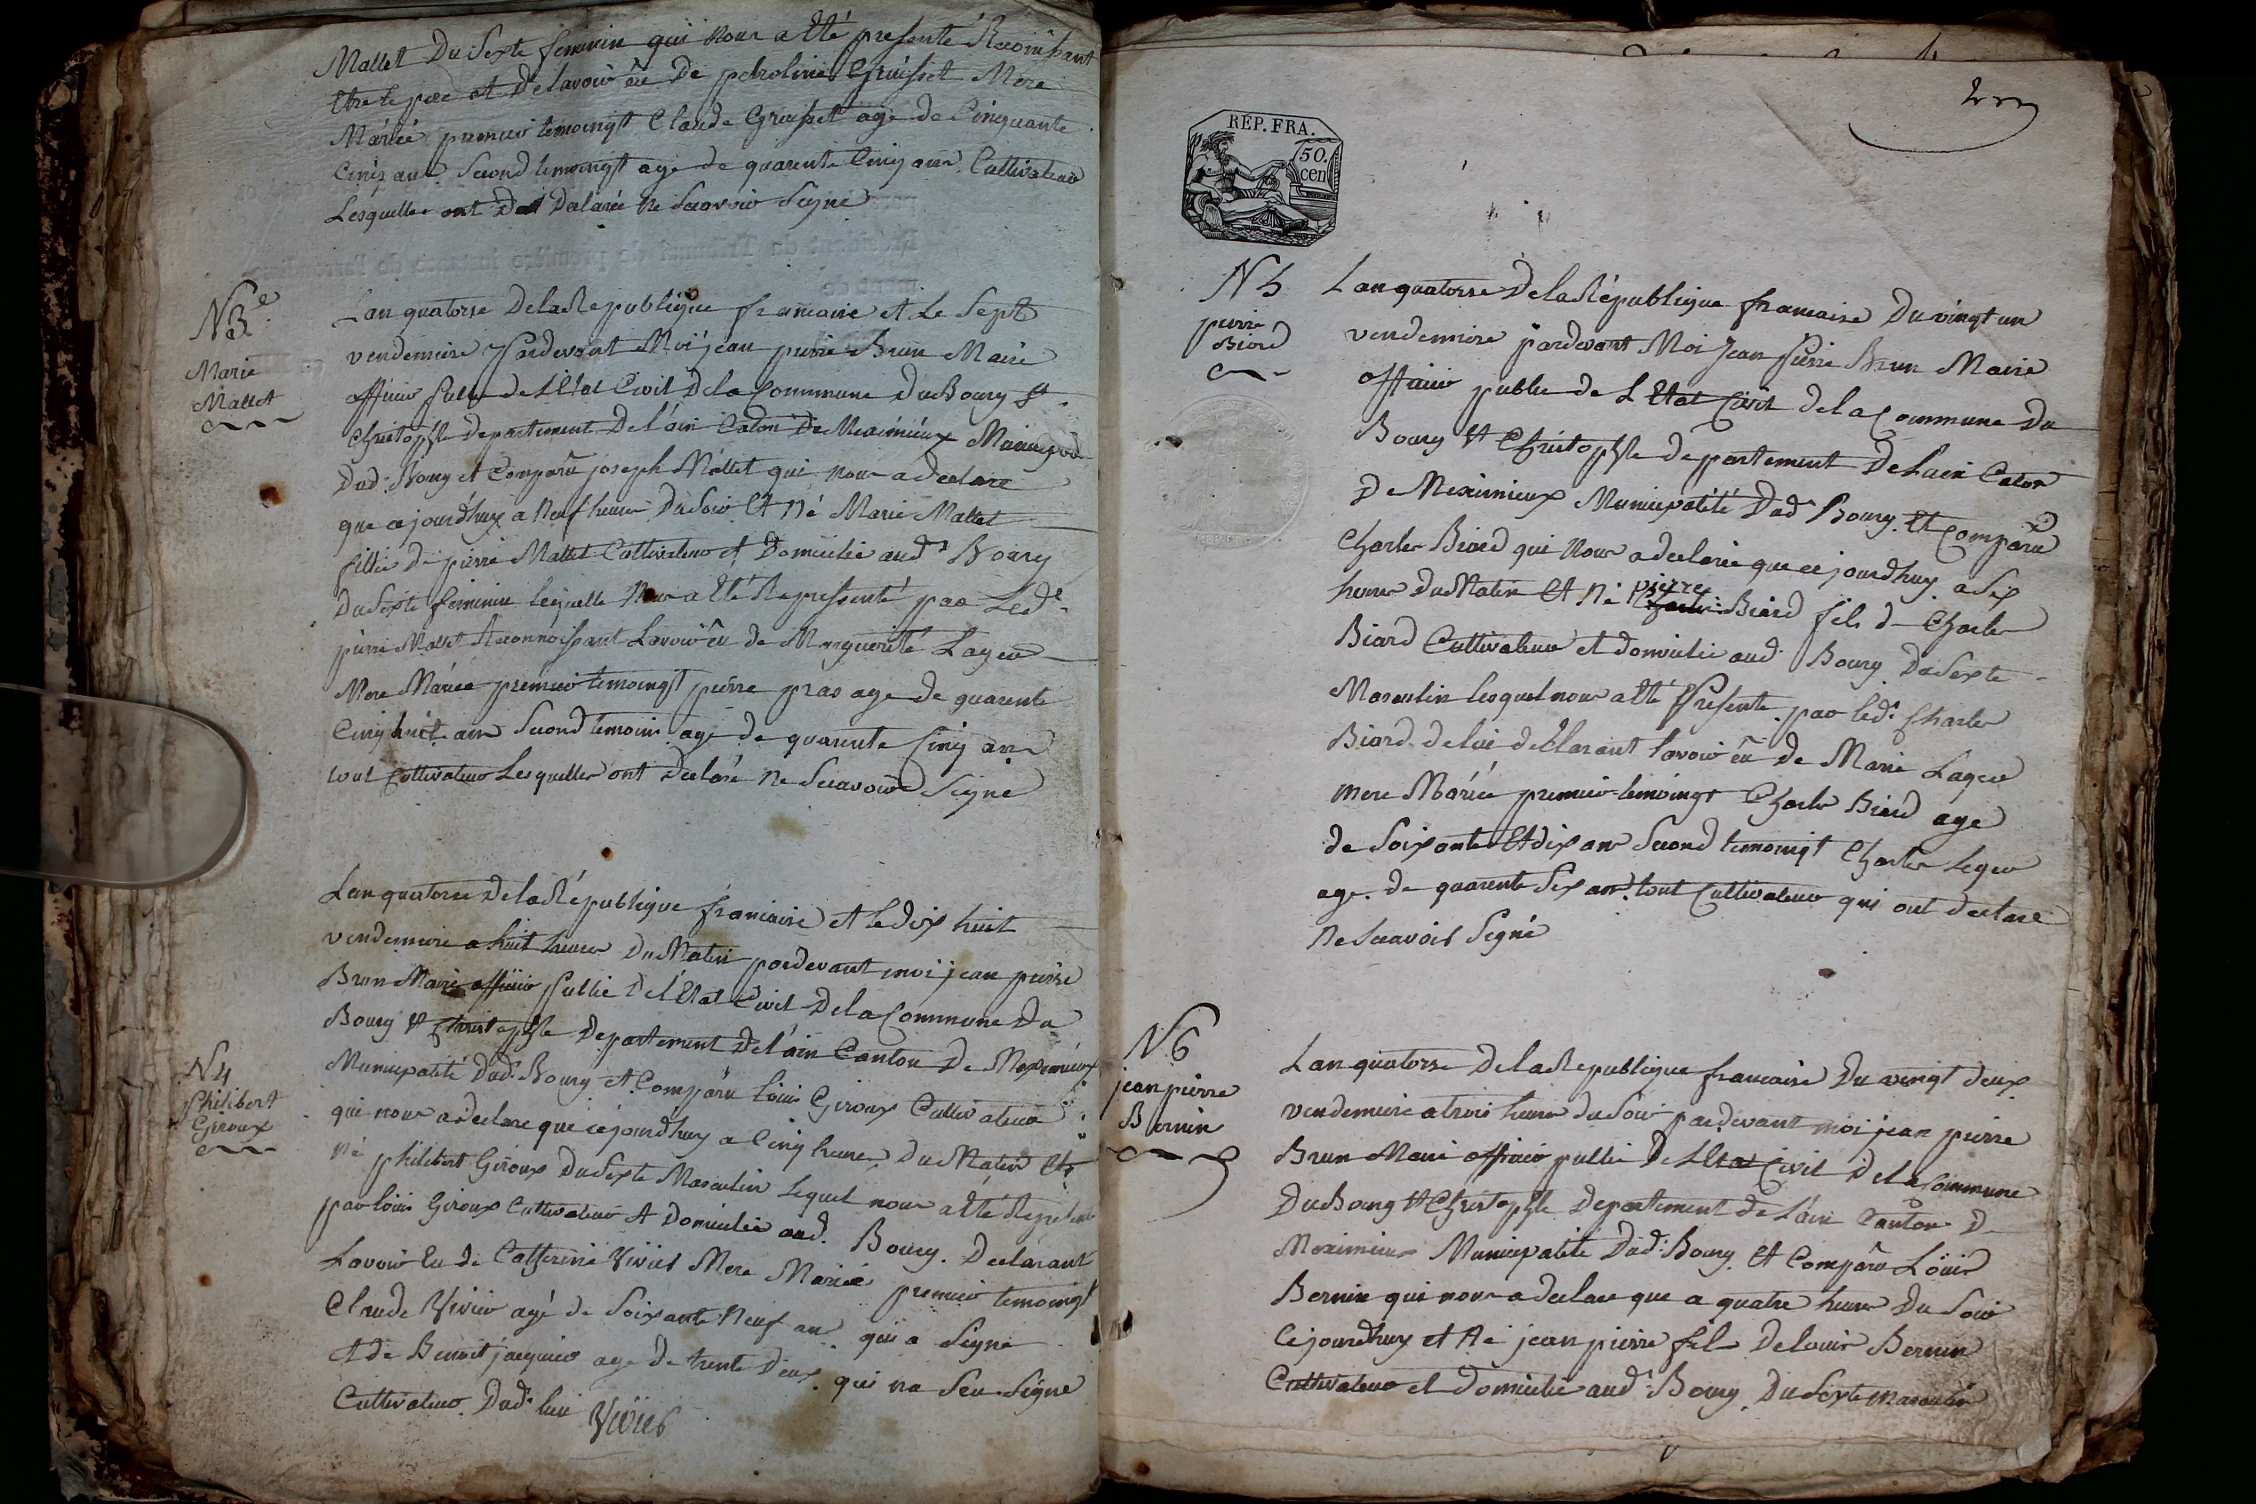 Mallet Du Sexte feminin qui nous a Eté presenté Reconissant
Etre le pere et De lavoir êu De petroline Gruisset Mere
Mariée premier temoingt Claude Grusset age de Cinquante
Cinq ans Second temoingt age de quarente Cinq ans Cultivateur
Lesquelles ont Declarée ne Scavoir Signé
N 3e
Marie
Mallet
Lan quatorse De la Republique francaise et Le Sept
vendemiere pardevant Moi jean pierre Brun Maire
officier public de L'Etat Civil De la Commune Du Bourg St
Christophle departement De l'ain Caton De Meximieux
Dud. Bourg et Comparu joseph Mallet qui nous a declare
que ce jourdhuy a Neuf heures Du Soir Et né Marie Mallet
fillie De pierre Mallet Cultivateur et Domicilié aud. Bourg
Du Sexte feminin lequelle Nous a Eté Repressenté par Led.
pierre Mallet Reconnoissant Lavoir êu de Marguerite Lager
Mere Mariée premier temoingt pierre pras age de quarente
Cinq huit ans Second temoins age de quarente Cinq ans
tout Cultivateur Lesquelles ont declaré ne Scavoir Signé
N 4
Philibert
Giroux
Lan quatorse De la République francaise et le dix huit
vendemiere a huit heures Du Matin pardevant moi jean pierre
Brun Maire officier Public De l'Etat Civil De la Commune Du
Bourg St Christophle Departement De l'ain Canton De Meximieux
Municipalité Dud. Bourg et Comparu Louis Giroux Cultivateur
qui nous a declare que ce jourdhuy a Cinq heures Du Matin Et
né philibert Giroux Du Sexte Masculin lequel nous a Eté
par Louis Giroux Cultivateur et Domicilié aud. Bourg. Declarant
Lavoir Eu De Catherine Vivier Mere Mariée premier temoingt
Claude Vivier agé de Soixante Neuf ans qui a Signé
et de Benoit jacquier age De trente Deux qui na Seu Signé
Cultivateur Dud. lieu Vivier
REP. FRA.
50.
cen
N 5
pierre
Biard
Lan quatorse De la République francaise Du vingt un
vendemiere pardevant Moi Jean Pierre Brun Maire
officier public de L'Etat Civil de la Commune Du
Bourg St Christophle departement De Lain Caton
De Meximieux Municipalité Dud. Bourg. Et Comparu
Charles Biard qui Nous a declarée que ce jourdhuy a Six
heures Du Matin Et Né pierre Biard fils d Charles
Biard Cultivateur et domicilié aud. Bourg. Du Sexte
Masculin lesquel nous a Eté Présenté par led. Charles
Biard de lui declarant lavoir êu de Marie Lager
mere Mariée premier temoingt Charles Biard age
de Soixante Et dix ans Second temoingt Charles Leger
age. de quarente Six ans tout Cultivateur qui ont declaré
ne Scavoir Signé
N 6
jean pierre
Bernin
Lan quatorse De la Republique francaise Du vingt deux
vendemiere a trois heures du Soir pardevant moi jean pierre
Brun Maire officier public De L'Etat Civil De la Commune
Du Bourg St Christophle Departement de L'ain Canton D
Meximieux Municipalité Dud. Bourg. Et Comparu Louis
Bernin qui nous a declare que a quatre heures Du Soir
Ce jourdhuy et Né jean pierre fils De louis Bernin
Cultivateur et domicilié aud. Bourg. Du Sexte masculin